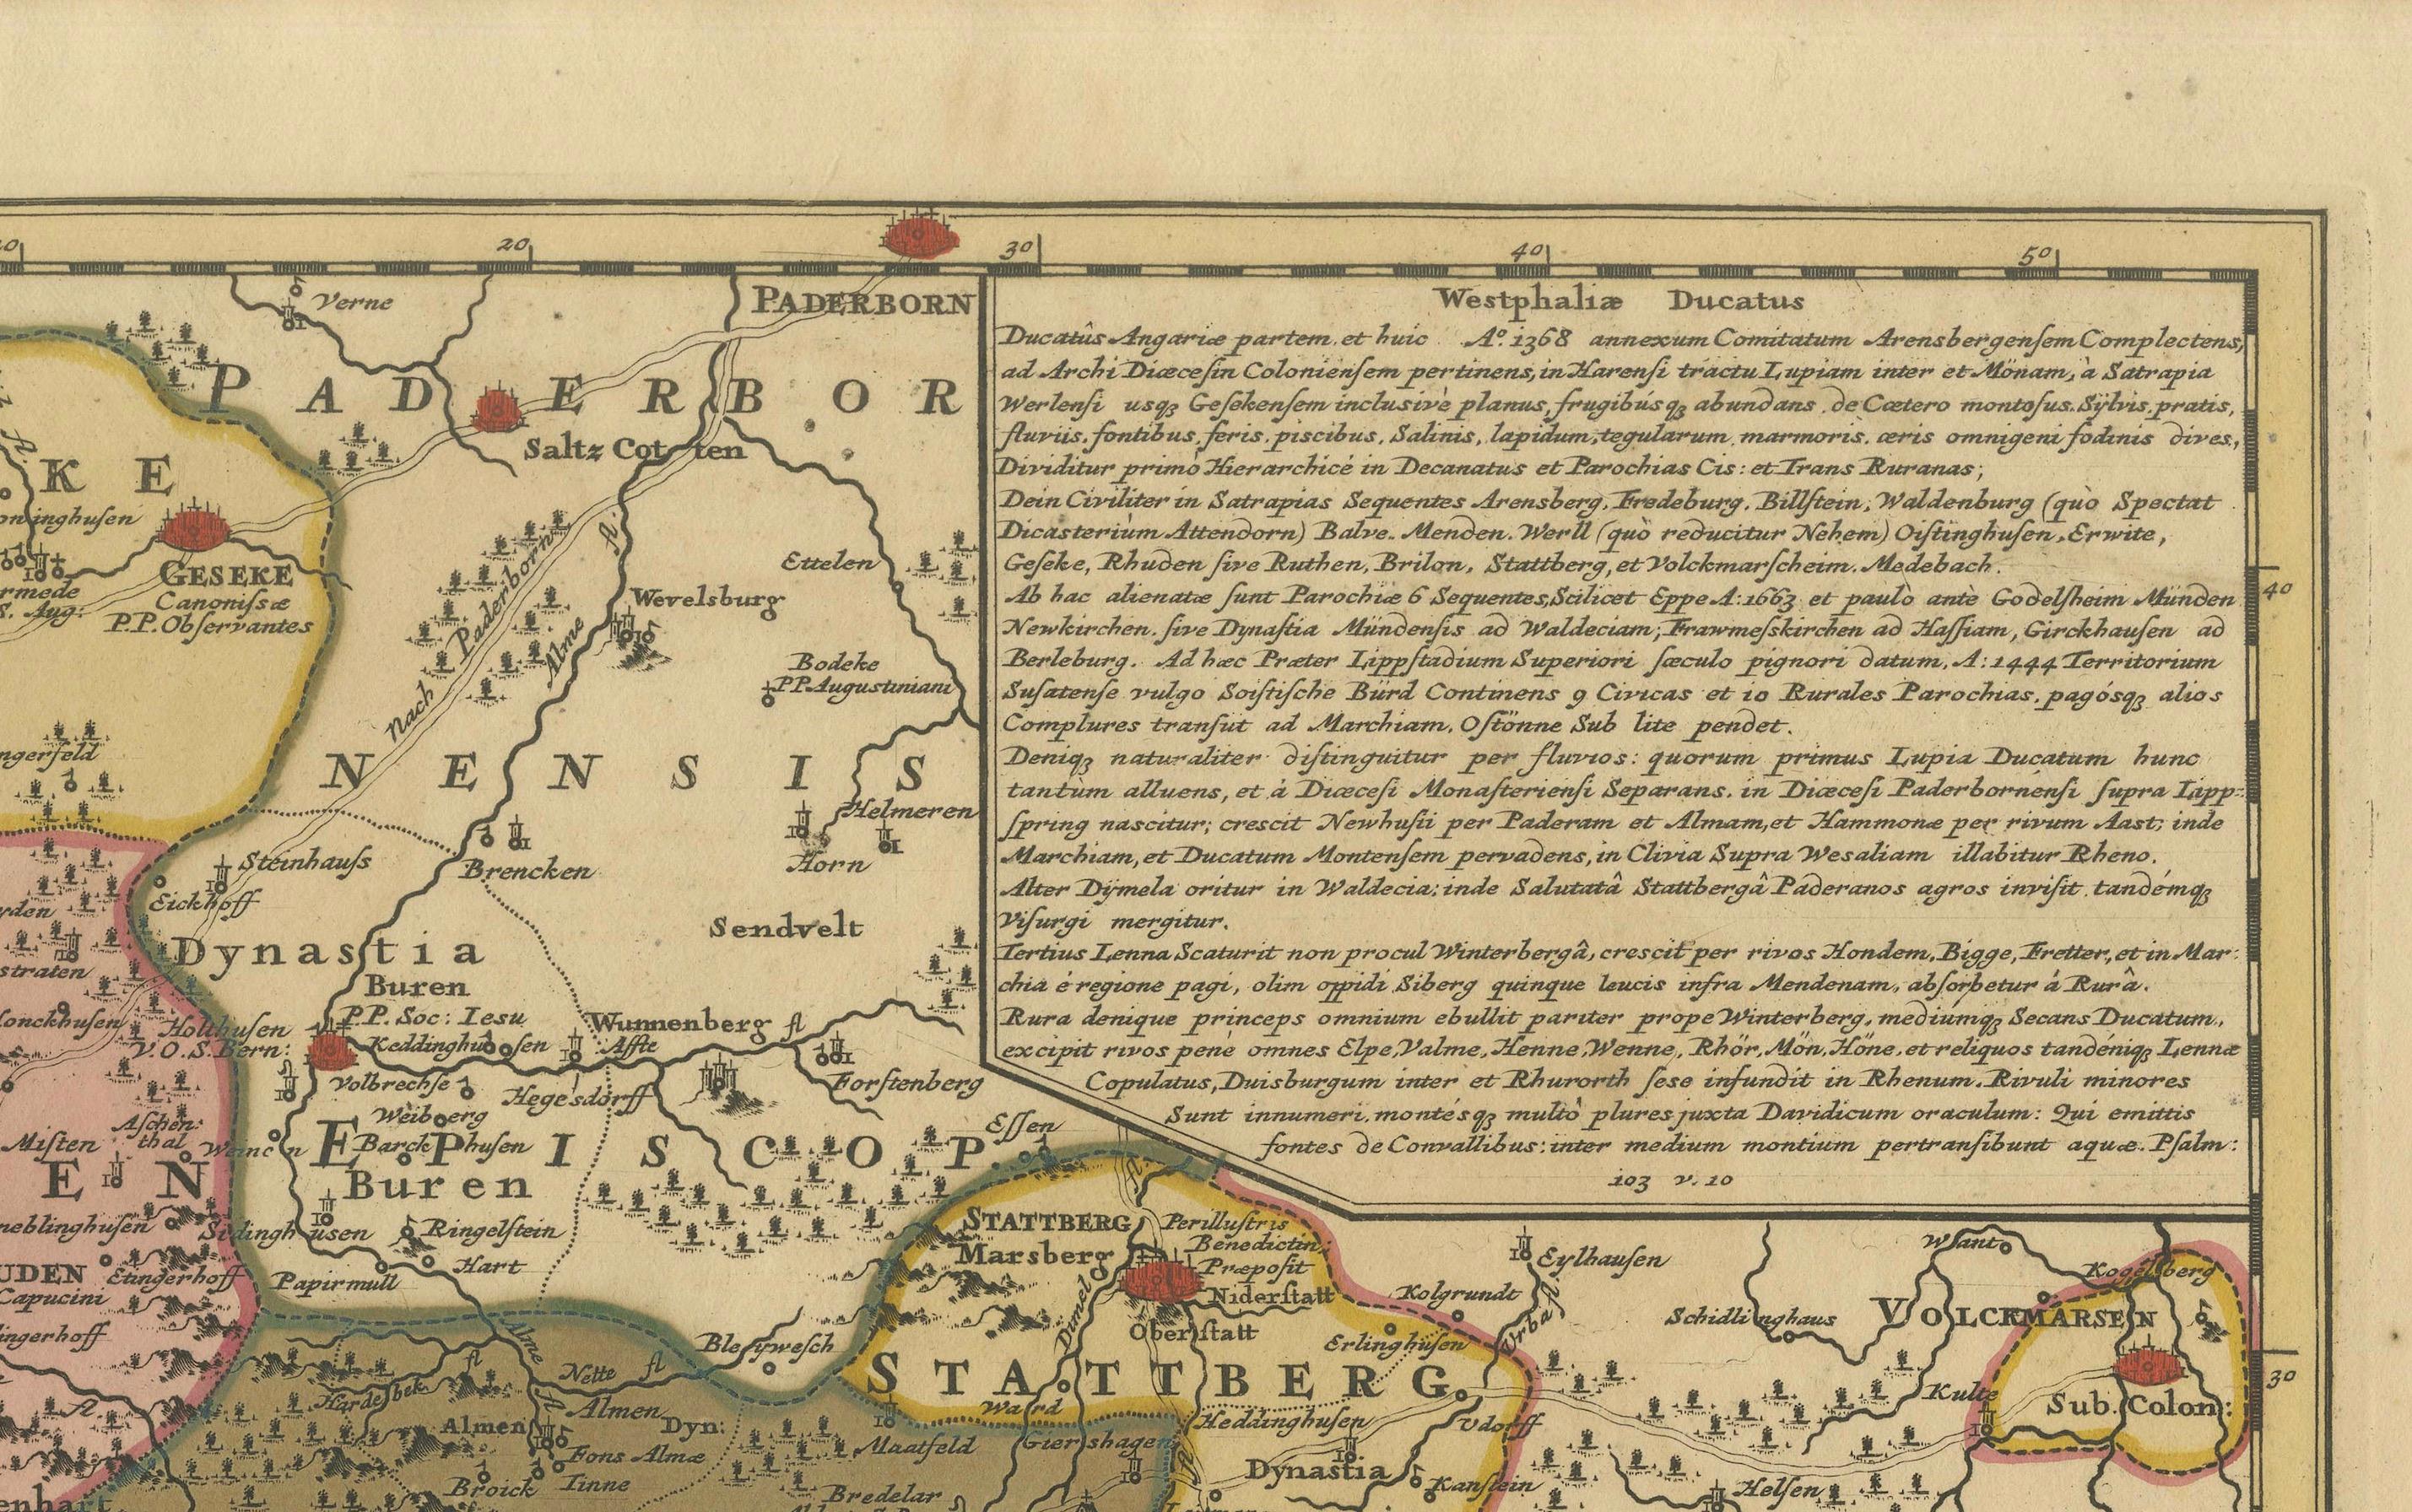 20
30
40
50
PADERBORN
Verne
PADERBOR
Saltz Cotten
KE
GESEKE
Canonissæ
P.P. Observantes
S. Aug:
Ettelen
Wevelsburg
Nach Paderborn
Alme fl.
Bodeke
PP. Augustiniani
NENSIS
Helmeren
Horn
Steinhauss
Brencken
Eickhoff
Sendvelt
Dynastia
Buren
P.P. Soc: Iesu
Wunnenberg
fl
Holthusen
V.O.S. Bern:
Keddinghusen
Affte
Volbrechse
Hegesdorff
Forstenberg
Weiberg
Aschen:
thal
Misten
Barckhusen
EPISCOP.
Essen
EN
Buren
Sidinghusen
Ringelstein
Hart
Papirmull
Etingerhoff
Capucini
Westphaliæ Ducatus
Ducatûs Angariæ partem et huic Aº. 1368 annexum Comitatum Arensbergenſem Complectens,
ad Archi Diæceſin Colonienſem pertinens, in Harenſi tractu Lupiam inter et Mönam, à Satrapia
Werlenſi usqꝫ Geſekenſem inclusivè planus, frugibúsqꝫ abundans. de Cætero montoſus. Sÿlvis. pratis,
fluviis. fontibus. feris. piscibus. Salinis, lapidum, tegularum, marmoris. æris omnigeni fodinis dives,
Dividitur primò Hierarchicè in Decanatus et Parochias Cis: et Trans Ruranas;
Dein Civiliter in Satrapias Sequentes Arensberg, Fredeburg. Billſtein, Waldenburg (quò Spectat
Dicasterium Attendorn) Balve. Menden. Werll (quò reducitur Nehem) Oiſtinghuſen, Erwite,
Geſeke, Rhuden ſive Ruthen, Brilon, Stattberg, et Volckmarſcheim. Medebach.
Ab hac alienatæ ſunt Parochiæ 6 Sequentes, Scilicet Eppe A: 1663 et paulò antè Godelſheim Münden
Newkirchen. ſive Dynaſtia Mündenſis ad Waldeciam, Frawmeſskirchen ad Haſſiam, Girckhauſen ad
Berleburg. Ad hæc Præter Lippſtadium Superiori ſæculo pignori datum, A: 1444 Territorium
Suſatenſe vulgo Soiſtiſche Bürd Continens 9 Civicas et 10 Rurales Parochias. pagósqꝫ alios
Complures tranſut ad Marchiam. Oſtönne Sub lite pendet.
Deniqꝫ naturaliter diſtinguitur per fluvios: quorum primus Lupia Ducatum hunc
tantum alluens, et à Diæceſi Monaſterienſi Separans. in Diæceſi Paderbornénſi ſupra Lipp-
ſpring nascitur; crescit Newhuſii per Paderam et Almam, et Hammonæ per rivum Aast; inde
Marchiam, et Ducatum Montenſem pervadens, in Clivia Supra Wesaliam illabitur Rheno.
Alter Dÿmela oritur in Waldecia: inde Salutatâ Stattbergâ Paderanos agros inviſit. tandémqꝫ
Viſurgi mergitur.
Tertius Lenna Scaturit non procul Winterbergâ, crescit per rivos Hondem, Bigge, Fretter, et in Mar:
chia è regione pagi, olim oppidi Siberg quinque leucis infra Mendenam, abſorbetur á Rurâ.
Rura denique princeps omnium ebullit pariter prope Winterberg, mediúmqꝫ Secans Ducatum,
excipit rivos penè omnes Elpe, Valme, Henne, Wenne, Rhör, Mön, Höne, et reliquos tandémqꝫ Lennæ
Copulatus, Duisburgum inter et Rhurorth ſese infundit in Rhenum. Rivuli minores
Sunt innumeri, montésqꝫ multò plures juxta Davidicum oraculum: Qui emittis
fontes de Convallibus: inter medium montium pertransibunt aquæ. Pſalm:
103 v. 10
40
30
STATTBERG
Marsberg
Perilluſtris
Benedictin:
Præpoſit
Niderſtatt
Oberſtatt
Dimel
Eylhauſen
Kolgrundt
Erlinghuſen
Urba fl
Schidlinghaus
Wſant
Kogelsberg
VOLCKMARSEN
Sub Colon:
Kulte
STATTBERG
Bleſyweſch
Nette fl
Alme
Hardesbek
fl
Almen
Almen
Dyn:
Fons Almæ
Broick
Tinne
Bredelar
Maatfeld
Giershagen
Heddinghuſen
Udorff
Dynastia
Kanſtein
Helſen